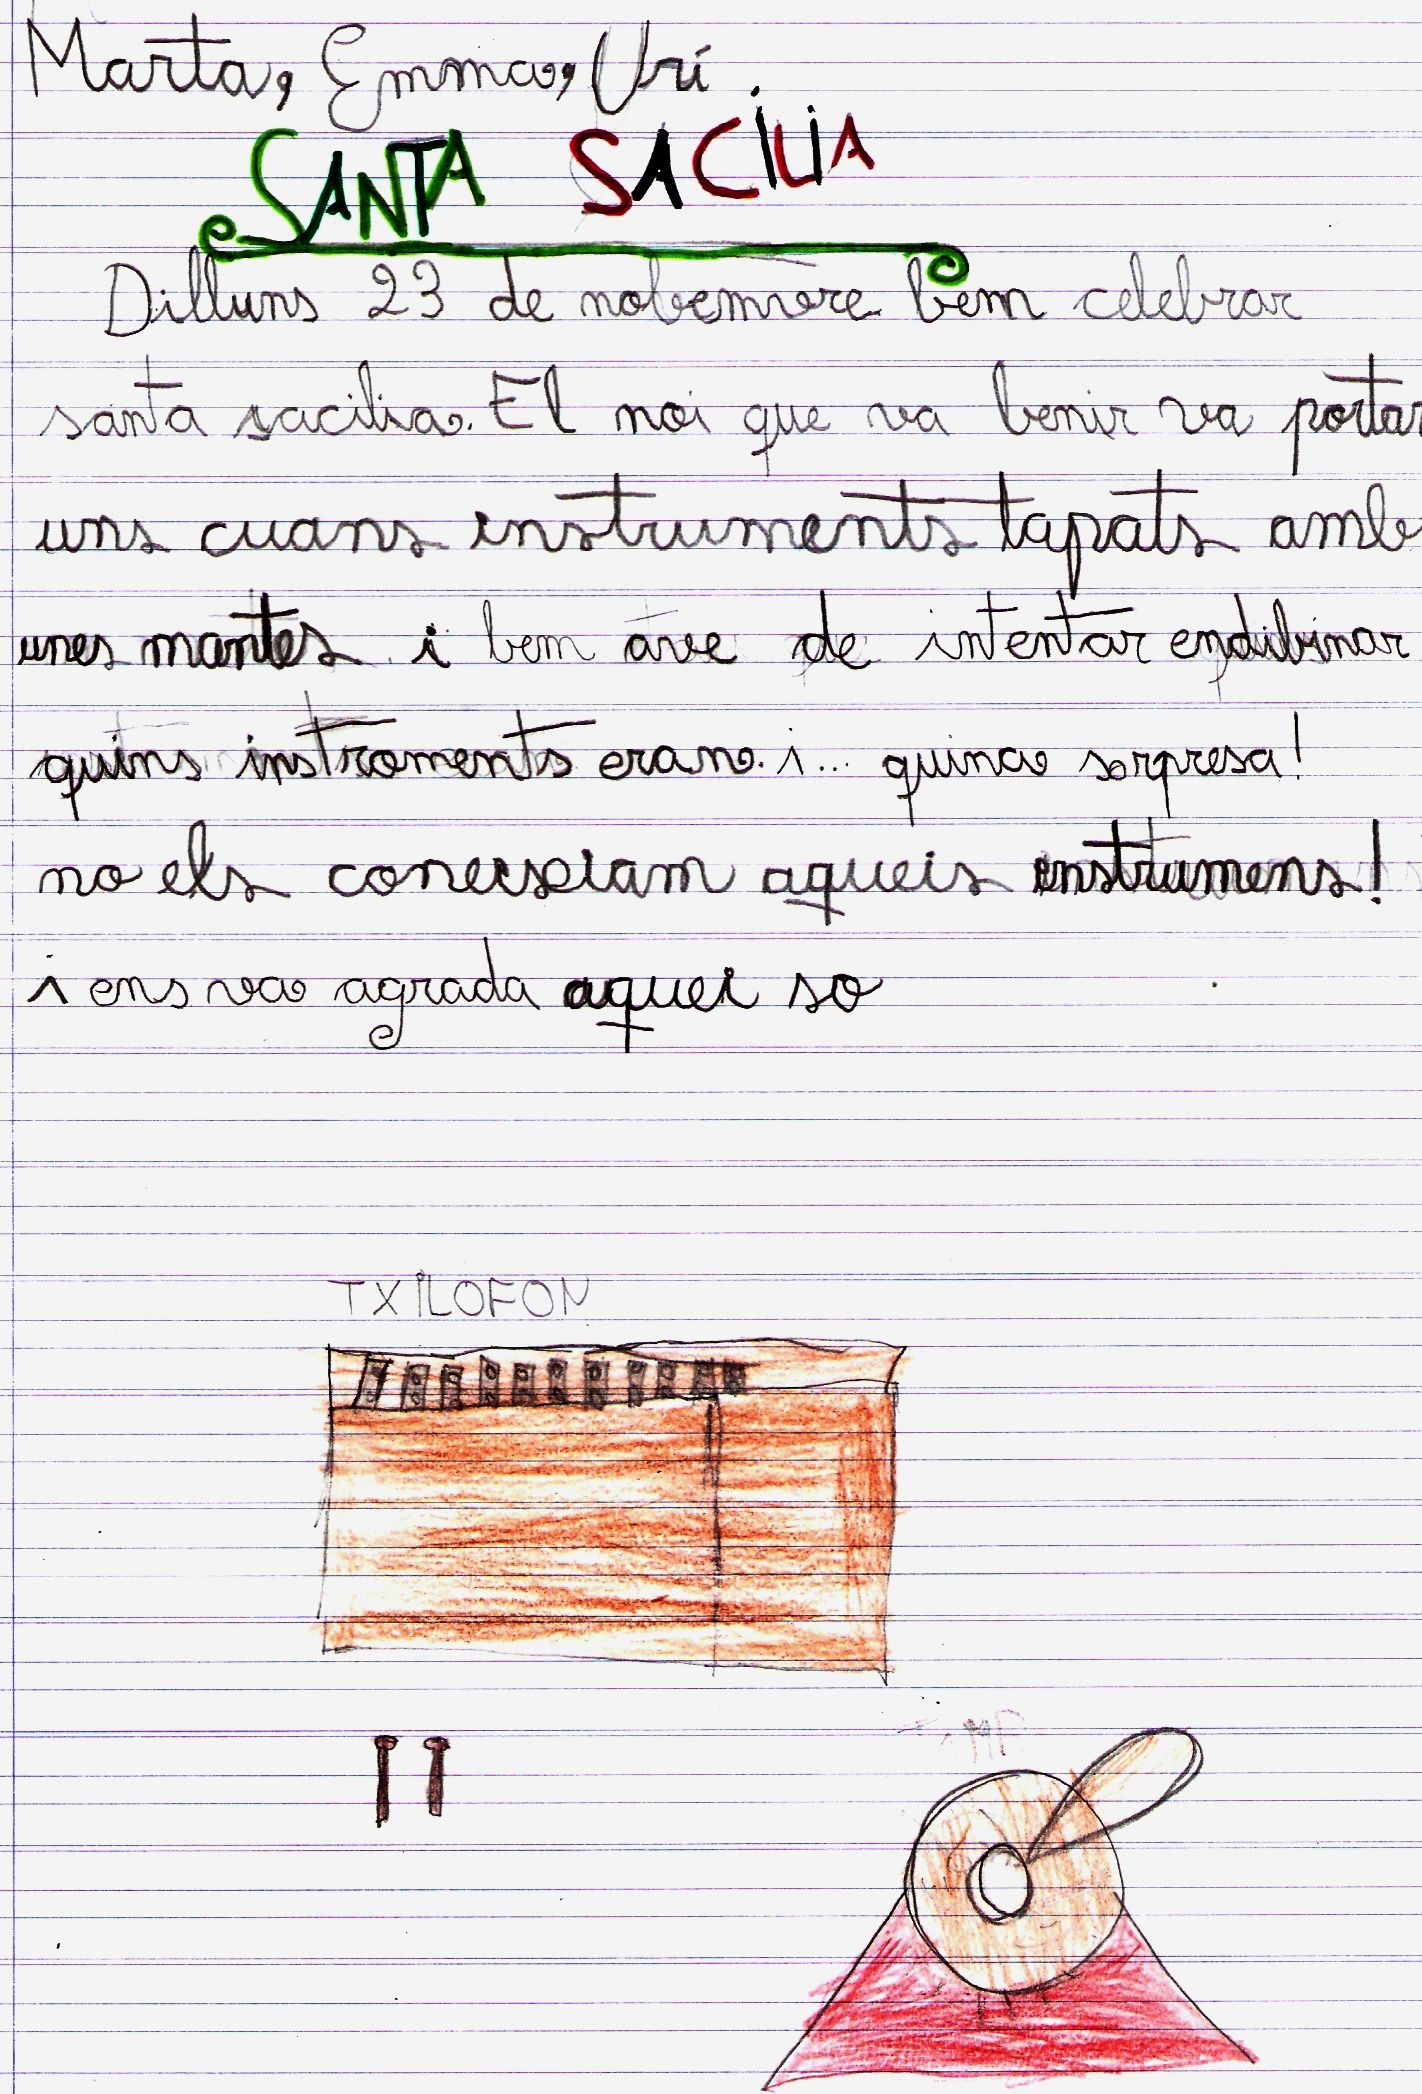 Marta, Emma, Uri
SANTA SACÍLIA
Dilluns 23 de nobembre bem celebrar
santa sacilia. El noi que va benir va portar
uns cuans instruments tapats amb
unes mantes i bem ave de intentar endibinar
quins instroments eran. i... quina sorpresa!
no els coneisxiam aqueis instrumens!
i ens va agrada aquei so
TXILOFON